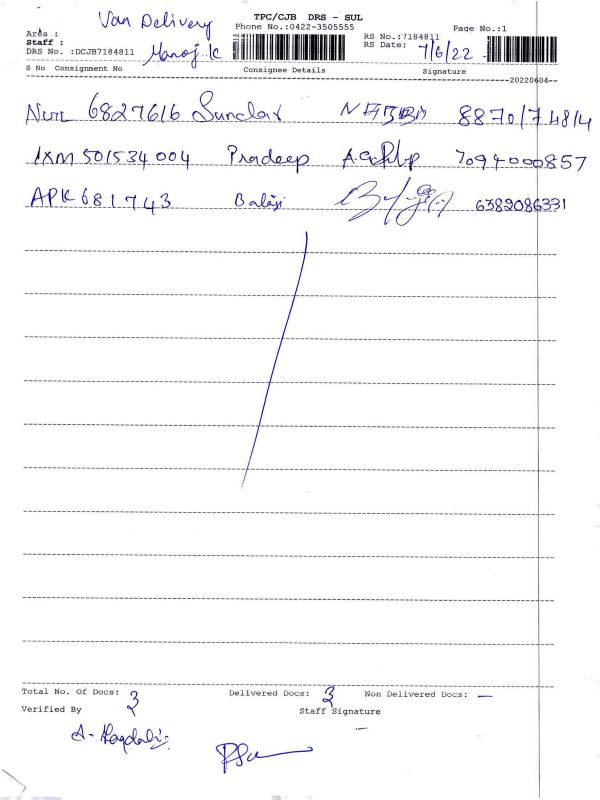 Van Delivery
TPC/CJB DRS - SUL
Phone No.:0422-3505555
Page No.:1
Area :
Staff : Manoj.K
RS No.:7184811
DRS No. :DCJB7184811
RS Date: 7/6/22
S No Consignment No Consignee Details Signature
20220604
6827616
8870174814
IXM 501534004 Pradeep 7094000857
APK 681743 Balaji 6382086331
Total No. Of Docs: 3 Delivered Docs: 3 Non Delivered Docs: —
Verified By Staff Signature